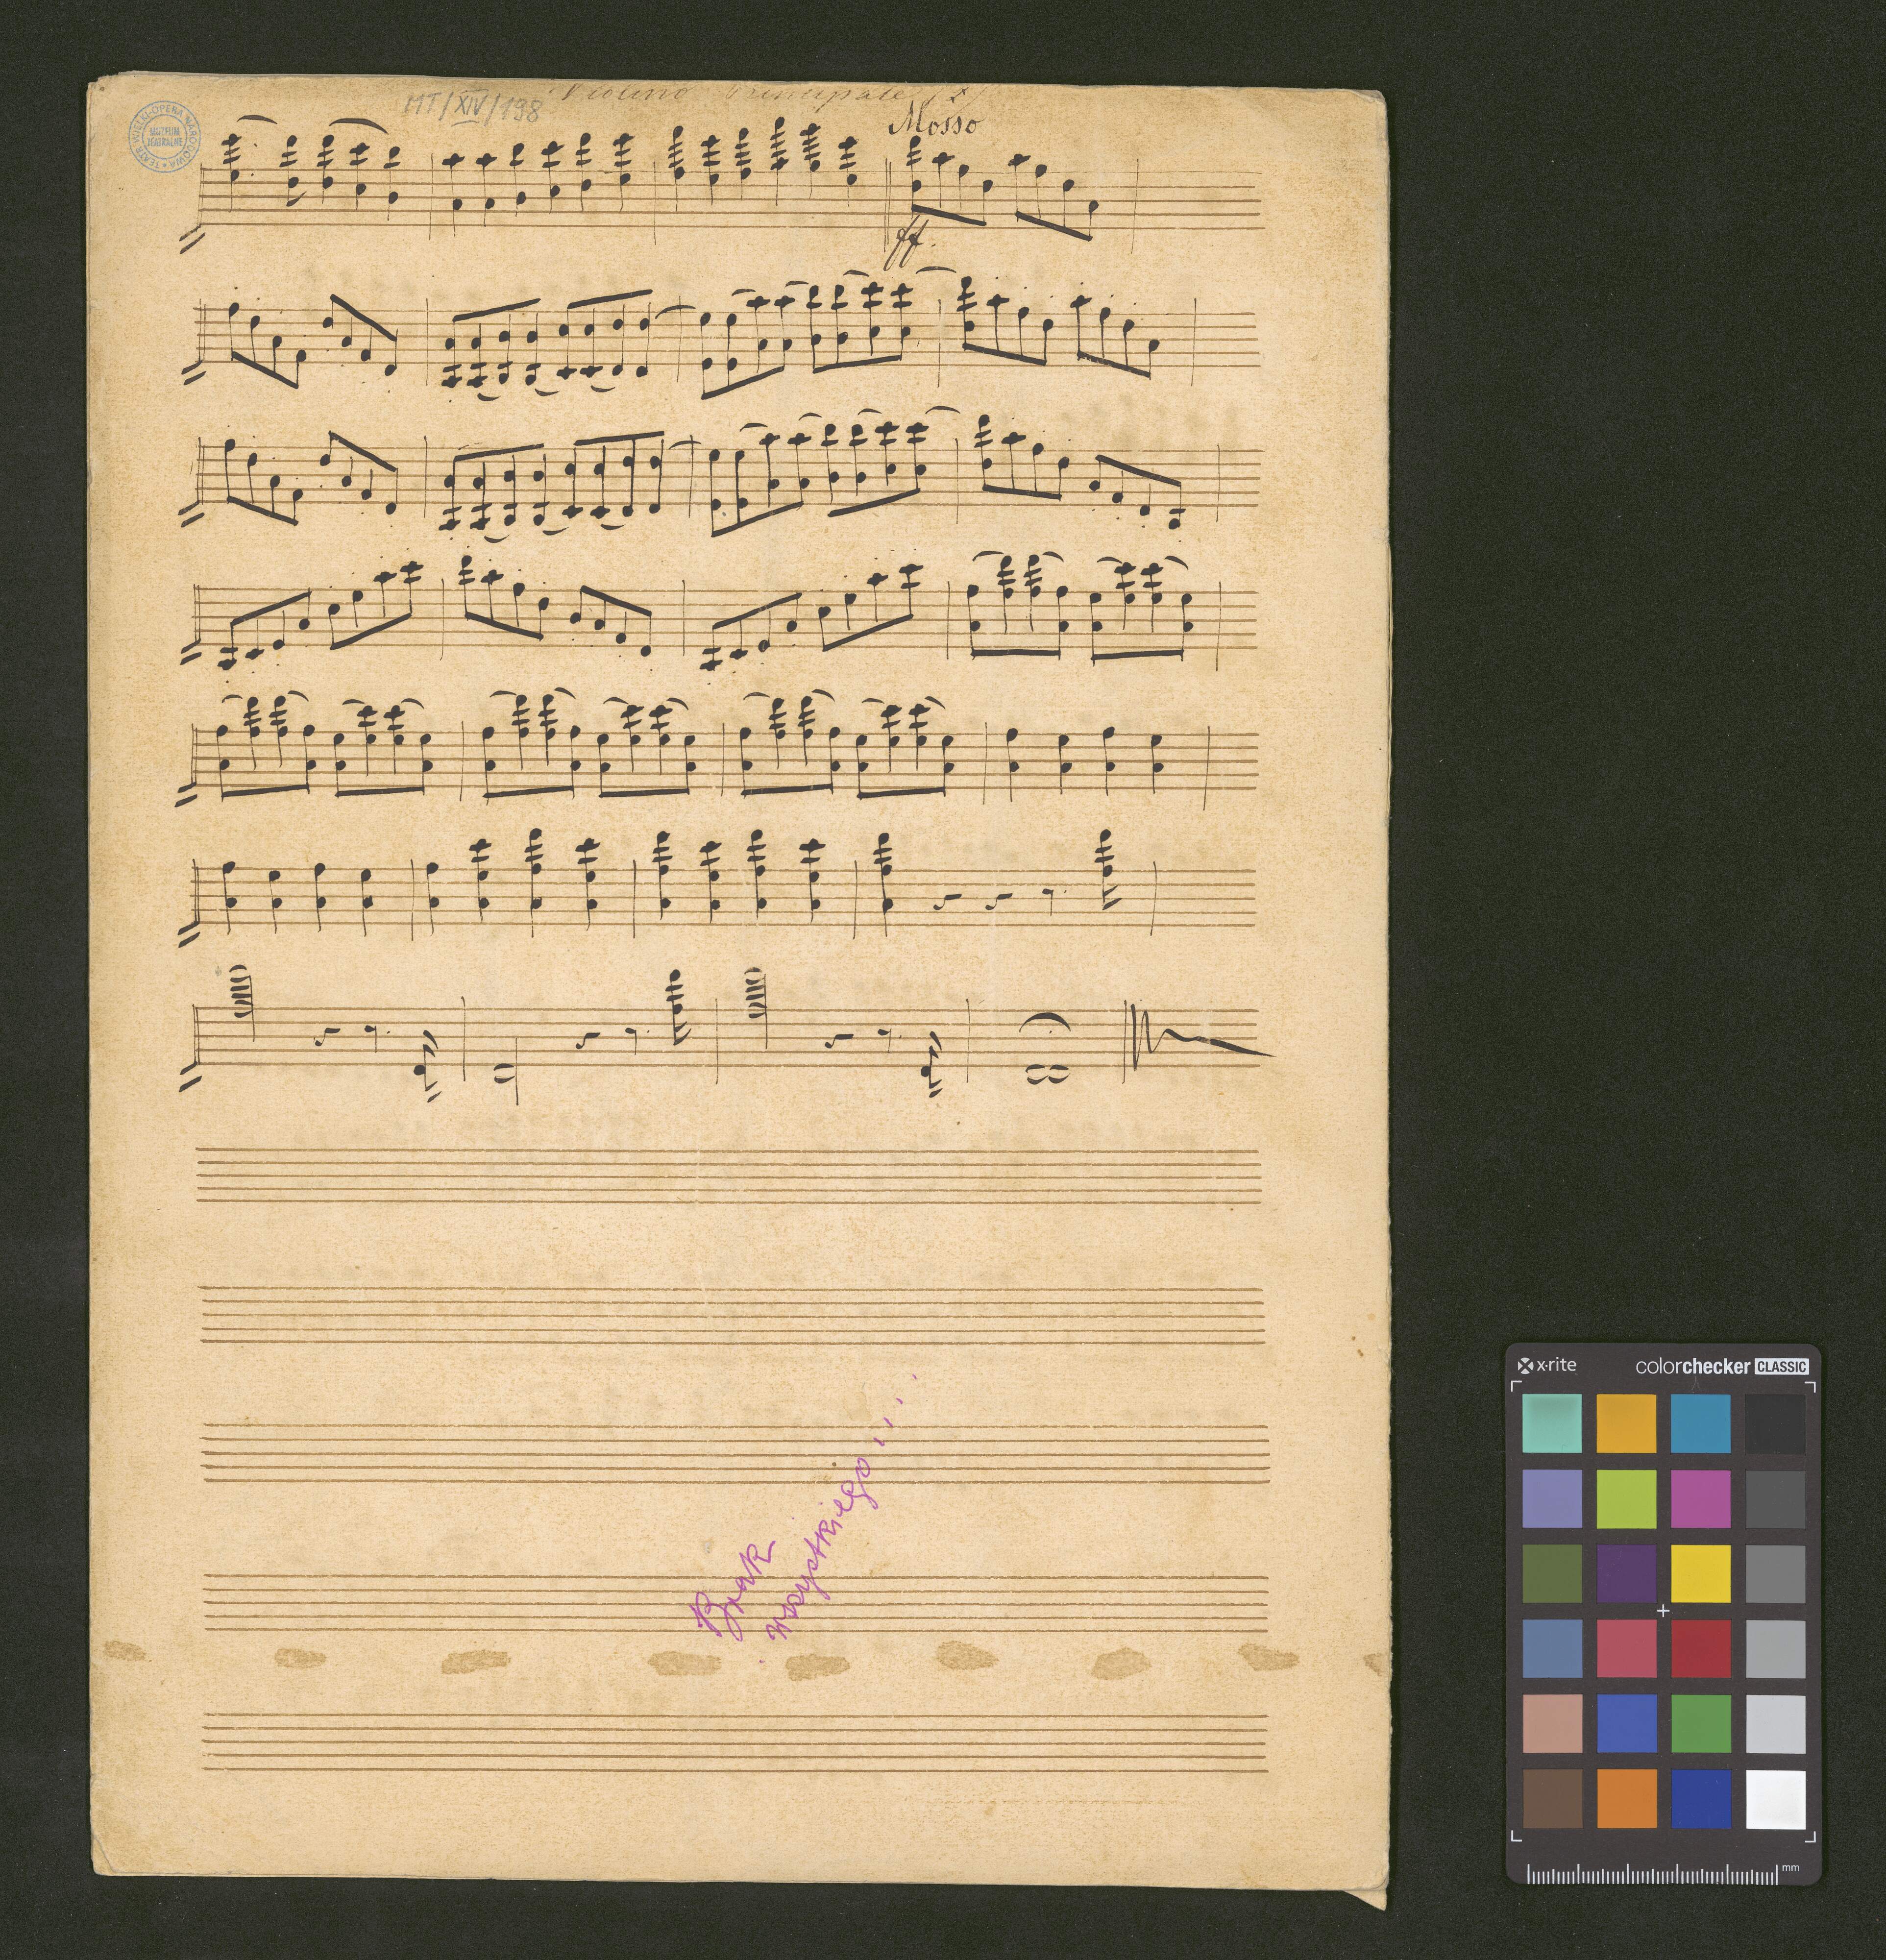 MT/XIV/198
Violino Principale
TEATR WIELKI-OPERA NARODOWA
MUZEUM
TEATRALNE
Mosso
ff.
Brak
wszystkiego...
x-rite
colorchecker CLASSIC
mm